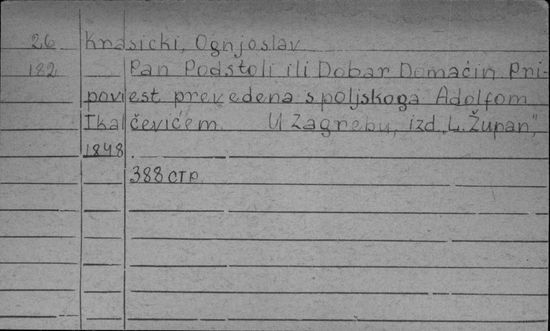 26 Krasicki, Ognjoslav
182 Pan Podstoli ili Dobar Domaćin. Pri-
poviest prevedena s poljskoga Adolfom
Tkalčevićem. U Zagrebu, izd „L. Župan",
1848.
388 стр.